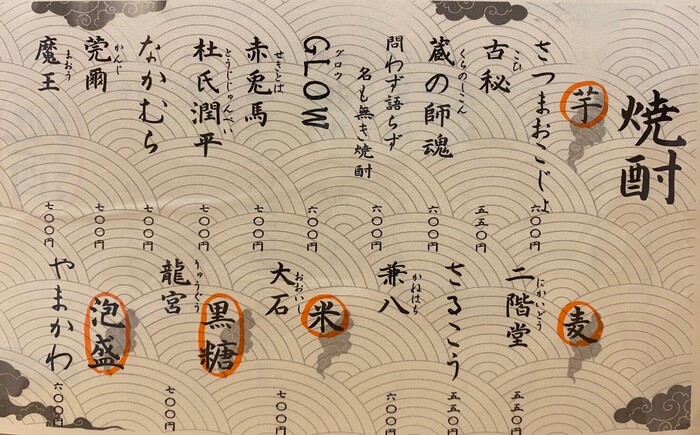 焼酎
芋
さつまおこじょ 六〇〇円
古秘 こひ 五五〇円
蔵の師魂 くらのしこん 六〇〇円
問わず語らず
名も無き焼酎 六〇〇円
GLOW グロウ 六〇〇円
赤兎馬 せきとば 七〇〇円
杜氏潤平 とうじじゅんぺい 七〇〇円
なかむら 七〇〇円
莞爾 かんじ 七〇〇円
魔王 まおう 七〇〇円
麦
二階堂 にかいどう 五五〇円
さるこう 五五〇円
兼八 かねはち 六〇〇円
米
大石 おおいし 七〇〇円
黒糖
龍宮 りゅうぐう 七〇〇円
泡盛
やまかわ 六〇〇円